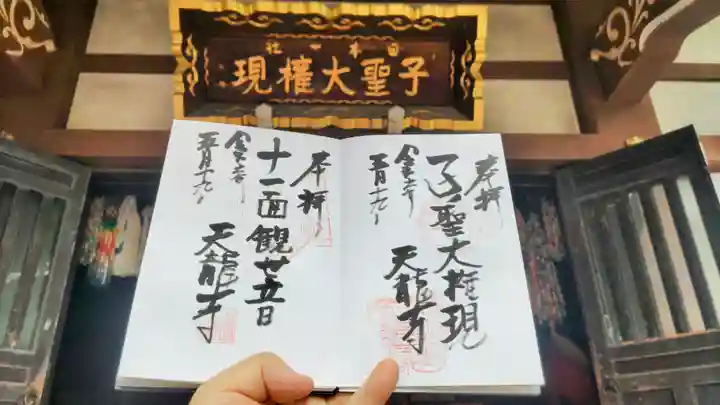 日本一社
子聖大権現
奉拝
子聖大権現
五月十九日
天龍寺
奉拝
十一面観世音
五月十九日
天龍寺